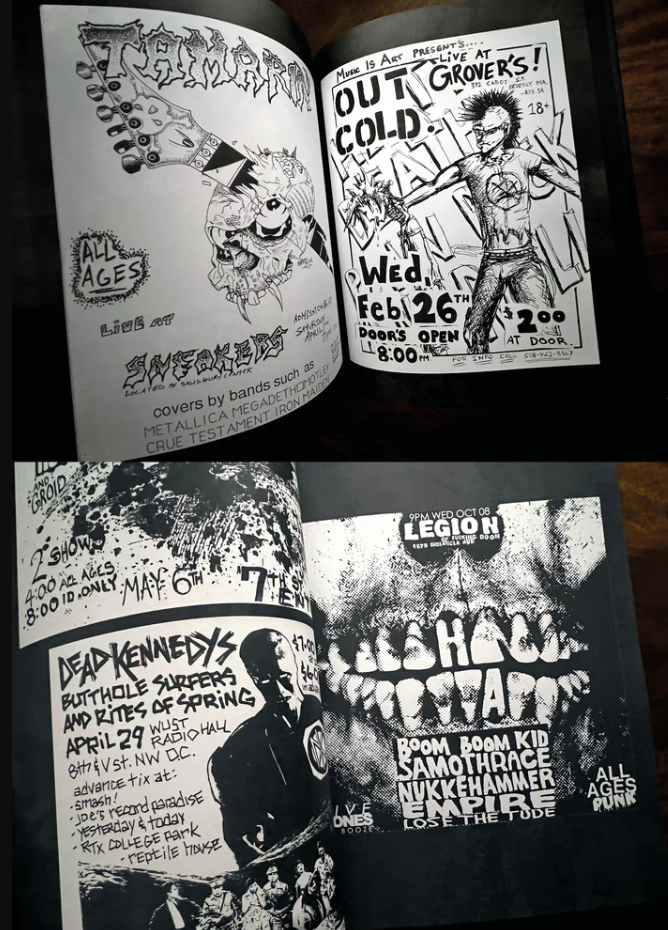 TAMARIN
ALL
AGES
LIVE AT
SNEAKERS
LOCATED IN SALISBURY CENTER
ADMISSION
SATURDAY
APRIL
covers by bands such as
METALLICA MEGADETH MOTLEY
CRUE TESTAMENT IRON MAIDEN
MUSIC IS ART PRESENT'S....
LIVE AT
GROVER'S!
392 CABOT ST.
BEVERLY MA.
-RTE 1A
18+
OUT
COLD.
Wed.
Feb 26TH
DOOR'S OPEN
8:00PM
$2.00
AT DOOR.
FOR INFO CALL
AND
GROID
2 SHOWS
4:00 ALL AGES
8:00 ID ONLY
MAY 6TH
7TH
DEAD KENNEDYS
BUTTHOLE SURFERS
AND RITES OF SPRING
APRIL 29
WUST
RADIO HALL
8th & V st. NW D.C.
advance tix at:
-smash!
-joe's record paradise
-yesterday & today
-RTX COLLEGE PARK
-reptile house
9PM WED OCT 08
LEGION
OF FUCKING DOOM
BOOM BOOM KID
SAMOTHRACE
NUKKEHAMMER
EMPIRE
LOSE THE TUDE
ALL
AGES
PUNK
BOOZE